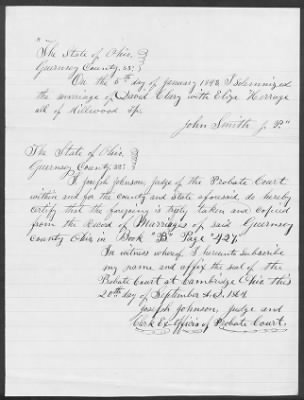 "The State of Ohio,
Guernsey County, ss:
On the 5th day of January 1843 I Solemnized
the marriage of David Clary with Eliza
all of Millwood Tp.
John Smith J. P."
The State of Ohio,
Guernsey County, ss:
I Joseph Johnson, Judge of the Probate Court
within and for the County and State aforesaid do hereby
certify that the foregoing is truly taken and copied
from the Record of Marriages of said Guernsey
County Ohio in Book "B" Page "427.
In witness whereof I hereunto subscribe
my name and affix the seal of the
Probate Court at Cambridge Ohio this
20th day of September A.D. 1864
Joseph Johnson, Judge and
Clerk Ex Officio of Probate Court.